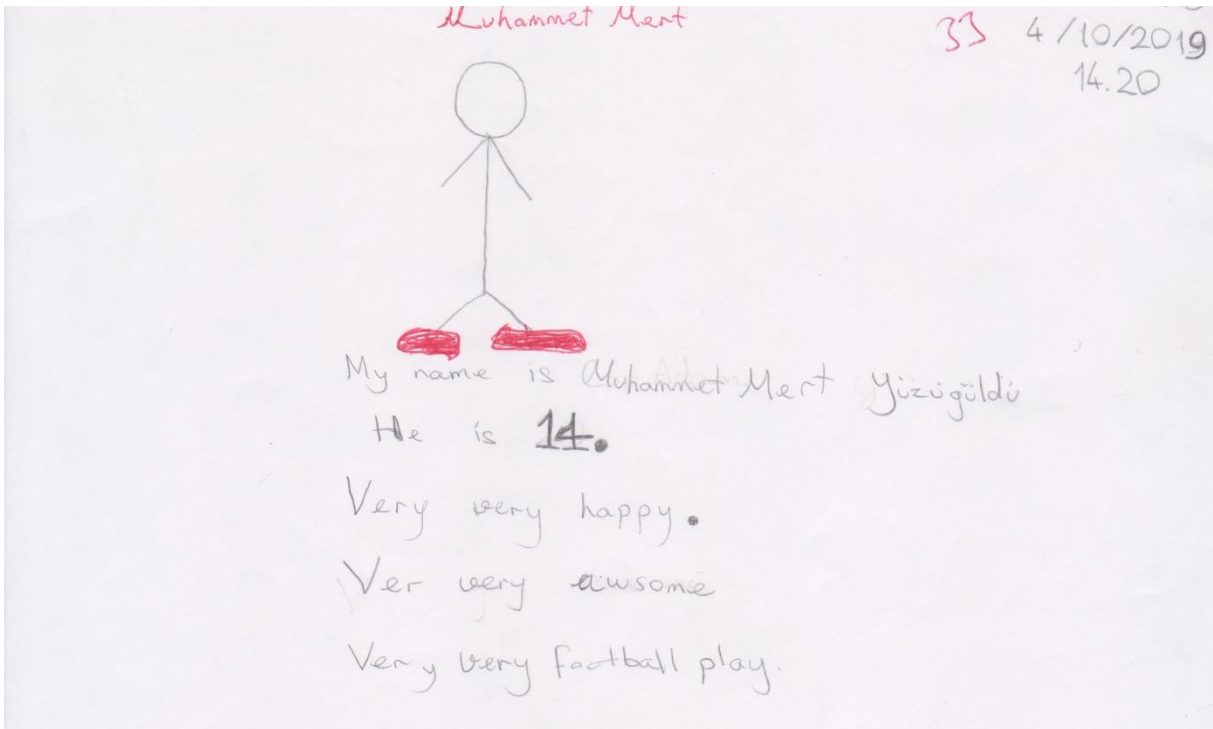 Muhammet Mert
33 4/10/2019
14.20
My name is Muhammet Mert Yüzügüldü
He is 14.
Very very happy.
Ver very awsome
Very very football play.